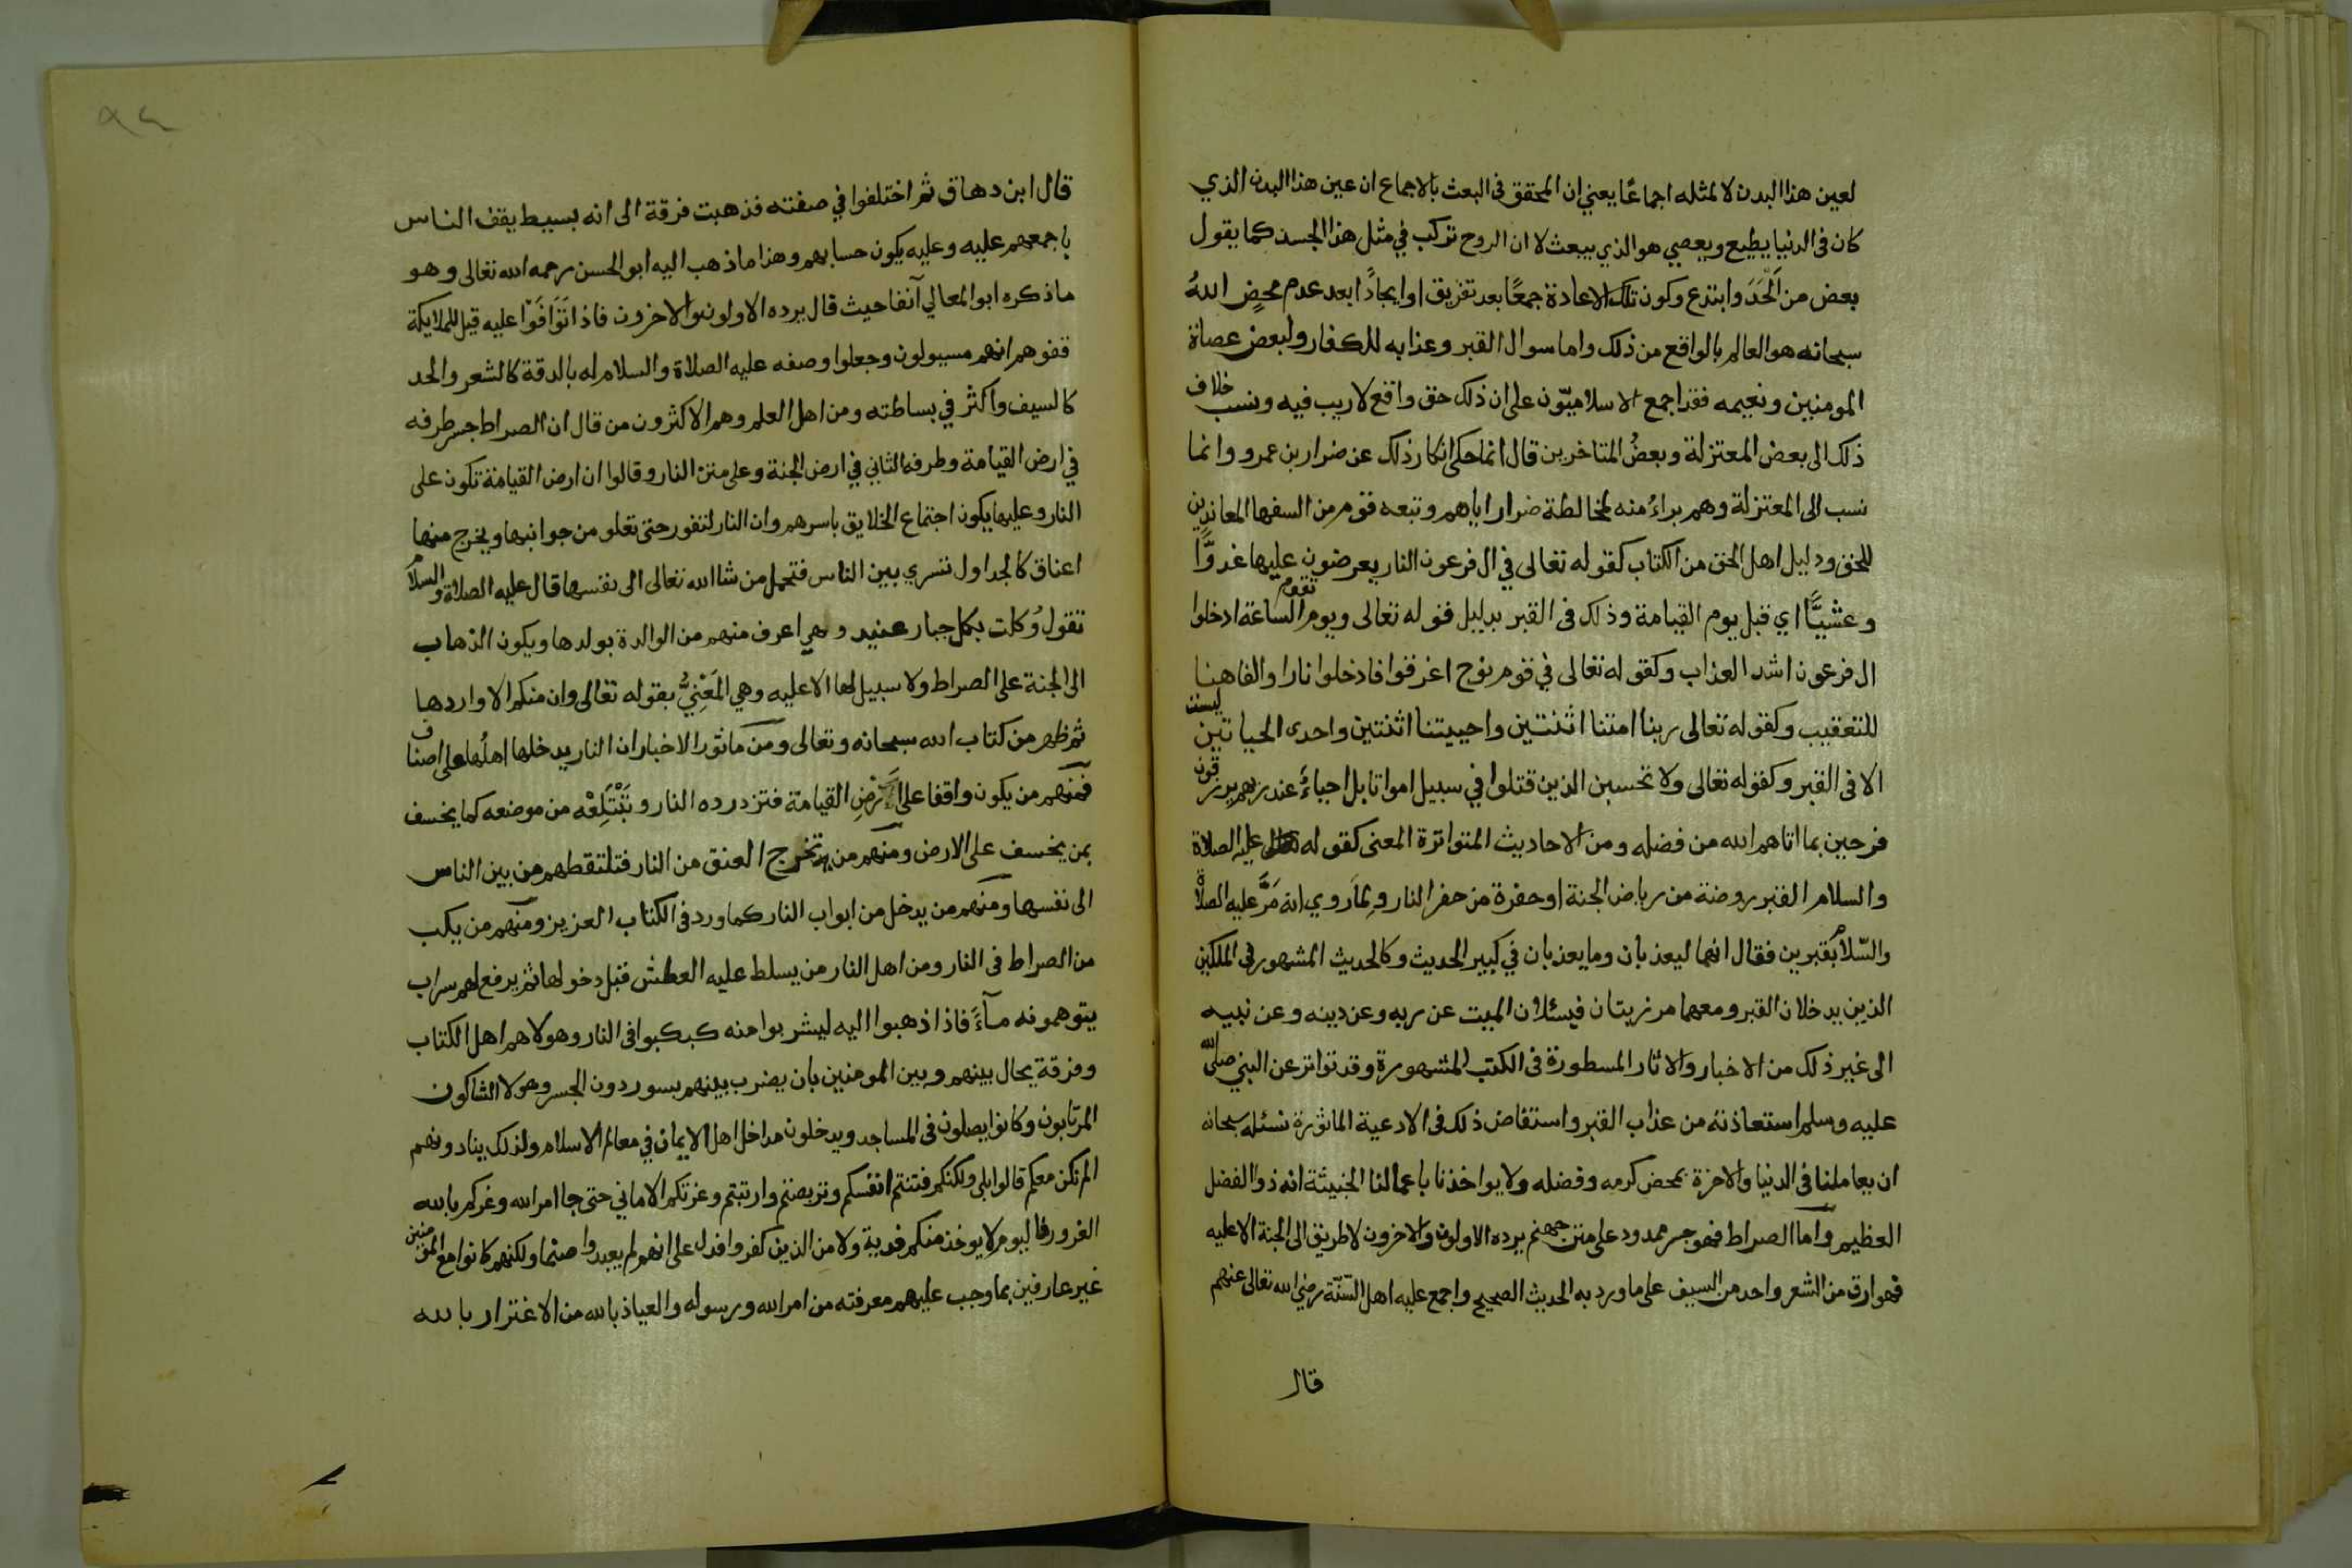 لعين هذا البدن لا لمثله اجماعًا يعني ان المحقق في البعث بالاجماع ان عين هذا البدن الذي
كان في الدنيا يطيع ويعصي هو الذي يبعث لا ان الروح تركب في مثل هذا الجسد كما يقول
بعض من اَلْحَدَ وابتدع وكون تلك الاعادة جمعًا بعد تفريق او ايجادًا بعد عدم محضٍ اللهُ
سبحانه هو العالم بالواقع من ذلك واما سوال القبر وعذابه للكفار ولبعض عصاة
المومنين ونعيمه فقد اجمع الاسلاميّون على ان ذلك حق واقع لا ريب فيه ونسب خلاف
ذلك الى بعض المعتزلة وبعضُ المتاخرين قال انما حكى انكار ذلك عن ضرار بن عمرو وانما
نسب الى المعتزلة وهم براءُ منه لمخالطة ضرار اياهم وتبعه قوم من السفها المعاندين
للحق ودليل اهل الحق من الكتاب كقوله تعالى في ال فرعون النار يعرضون عليها غدوًّا
وعشيًّا اي قبل يوم القيامة وذلك في القبر بدليل قوله تعالى ويوم تقوم الساعة ادخلوا
ال فرعون اشد العذاب وكقوله تعالى في قوم نوح اغرقوا فادخلوا نارا والفا هنا
للتعقيب وكقوله تعالى ربنا امتنا اثنتين واحييتنا اثنتين واحدى الحياتين ليست
الا في القبر وكقوله تعالى ولا تحسبن الذين قتلوا في سبيل امواتا بل احياءُ عند ربهم يرزقون
فرحين بما اتاهم الله من فضله ومن الاحاديث المتواترة المعنى كقوله عليه الصلاة
والسلام القبر روضة من رياض الجنة او حفرة من حفر النار وبِمَا روي انه مَرَّ عليه الصلاة
والسّلام بقبرين فقال انهما ليعذبان وما يعذبان في كبير الحديث وكالحديث المشهور في الملكين
الذين يدخلان القبر ومعهما مرزبتان فيسئلان الميت عن ربه وعن دينه وعن نبيه
الى غير ذلك من الاخبار والاثار المسطورة في الكتب المشهورة وقد تواتر عن النبي صلى الله
عليه وسلم استعاذته من عذاب القبر واستفاض ذلك في الادعية الماثورة نسئله سبحانه
ان يعاملنا في الدنيا والاخرة بمحض كرمه وفضله ولا يواخذنا باعمالنا الخبيثة انه ذوا الفضل
العظيم واما الصراط فهو جسر ممدود على متن جهنم يرده الاولون والاخرون لا طريق الى الجنة الا عليه
فهو ارق من الشعر واحد من السيف على ما ورد به الحديث الصحيح واجمع عليه اهل السّنّة رضي الله تعالى عنهم
قال
٩٤
قال ابن دهاق ثم اختلفوا في صفته فذهبت فرقة الى انه بسيط يقف الناس
باجمعهم عليه وعليه يكون حسابهم وهذا ما ذهب اليه ابو الحسن رحمه الله تعالى وهو
ما ذكره ابو المعالي آنفا حيث قال يرده الاولون والاخرون فاذا تَوَافَوْا عليه قيل للملايكة
قفوهم انهم مسيولون وجعلوا وصفه عليه الصلاة والسلام له بالدقة كالشعر والحد
كالسيف واكثر في بساطته ومن اهل العلم وهم الاكثرون من قال ان الصراط جسر طرفه
في ارض القيامة وطرفه الثاني في ارض الجنة وعلى متن النار وقالوا ان ارض القيامة تكون على
النار وعليها يكون اجتماع الخلايق باسرهم وان النار لتفور حتى تعلو من جوانبها ويخرج منها
اعناق كالجداول تسري بين الناس فتحمل من شا الله تعالى الى نفسها قال عليه الصلاة والسلام
تقول وُكلت بكل جبار عنيد وهي اعرف منهم من الوالدة بولدها ويكون الذهاب
الى الجنة على الصراط ولا سبيل لها الا عليه وهي المَعْنِيُّ بقوله تعالى وان منكم الا واردها
ثم ظهر من كتاب الله سبحانه وتعالى ومن ماثور الاخبار ان النار يدخلها اهلُها على اصناف
فمنهم من يكون واقفا على ارْضِ القيامة فتزدرده النار وتَبْتَلِعْه من موضعه كما يخسف
بمن يخسف على الارض ومنهم من تخرج العنق من النار فتلتقطهم من بين الناس
الى نفسها ومنهم من يدخل من ابواب النار كما ورد في الكتاب العزيز ومنهم من يكب
من الصراط في النار ومن اهل النار من يسلط عليه العطش قبل دخولها ثم يرفع لهم سراب
يتوهمونه مآءً فاذا ذهبوا اليه ليشربوا منه كبكبوا في النار وهولا هم اهل الكتاب
وفرقة يحال بينهم وبين المومنين بان يضرب بينهم بسور دون الجسر وهولا الشاكون
المرتابون وكانوا يصلون في المساجد ويدخلون مداخل اهل الايمان في معالم الاسلام ولذلك ينادونهم
الم نكن معكم قالوا بلى ولكنكم فتنتم انفسكم وتربصتم وارتبتم وغرتكم الاماني حتى جا امر الله وغركم بالله
الغرور فاليوم لا يوخذ منكم فدية ولا من الذين كفروا فدل على انهم لم يعبدوا صنما ولكنهم كانوا مع المومنين
غير عارفين بما وجب عليهم معرفته من امر الله ورسوله والعياذ بالله من الاغترار بالله